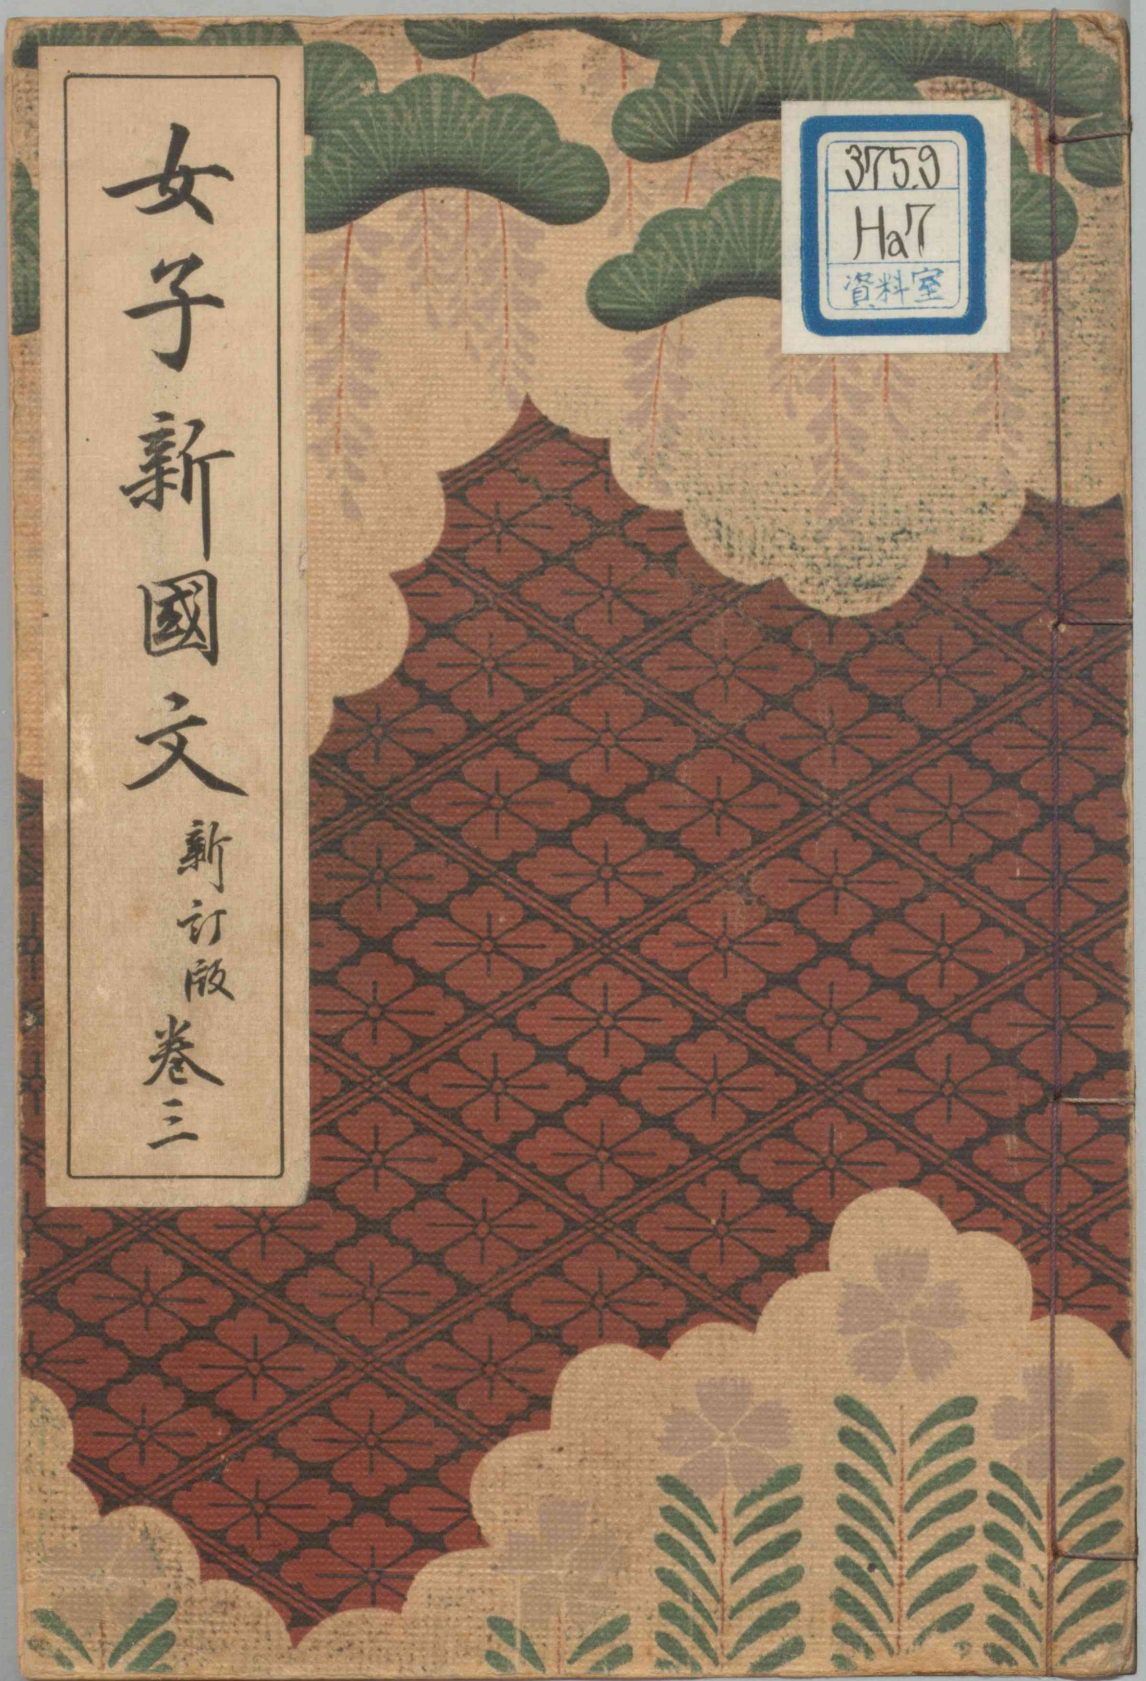 女子新國文 新訂版 卷三
375.9
Ha7
資料室